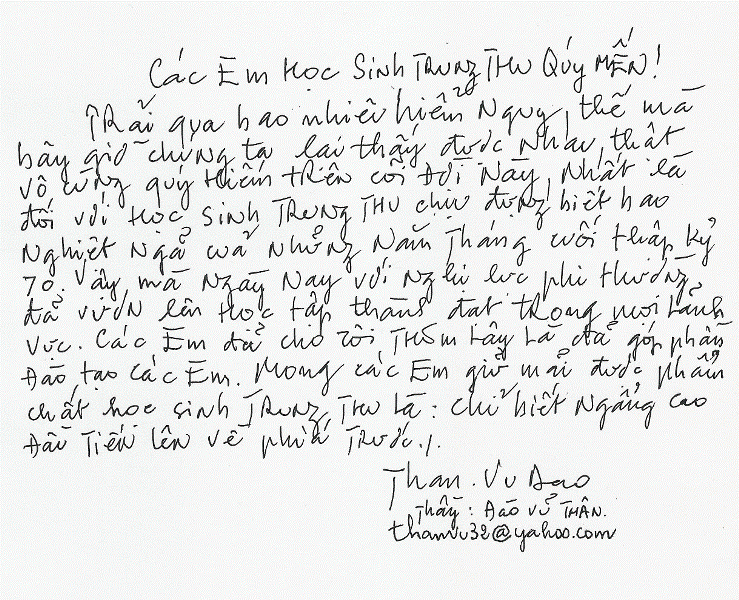 Các Em Học Sinh TRUNG THU QUÝ MẾN!
TRải qua bao nhiêu hiểm nguy, thế mà
bây giờ chúng ta lại thấy được nhau, thật
vô cùng quý hiếm trên cõi đời này, nhất là
đối với Học Sinh TRUNG THU chịu đựng biết bao
Nghiệt Ngả của những Năm Tháng cuối thập kỷ
70. Vậy mà ngày nay với nghị lực phi thường
đã vươn lên học tập thành đạt trong mọi lảnh
vực. Các Em đã cho tôi Thêm
 đã góp phần
Đào tạo các Em. Mong các Em giữ mải được phẩm
chất học sinh TRUNG THU là: chỉ biết ngẩng cao
Đầu Tiến lên về phía Trước./.
Than. Vu Dao
Thầy: ĐÀO VŨ THÂN.
thamvu32@yahoo.com